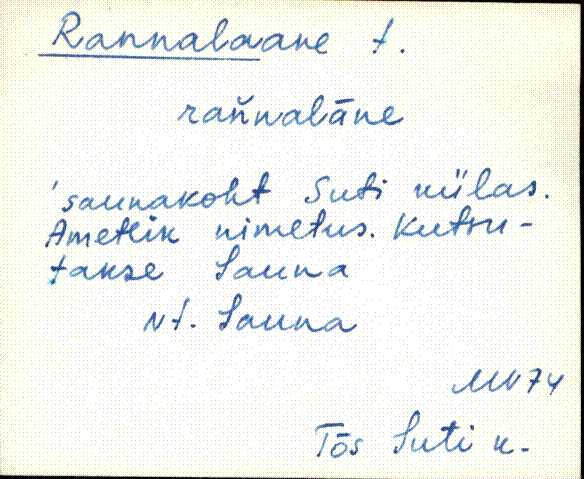 Rannalaane t.
rañnalāne
'saunakoht Suti külas.
Ametlik nimetus. Kutsu-
takse Sauna
Vt. Sauna
MV 74
Tõs Suti k.